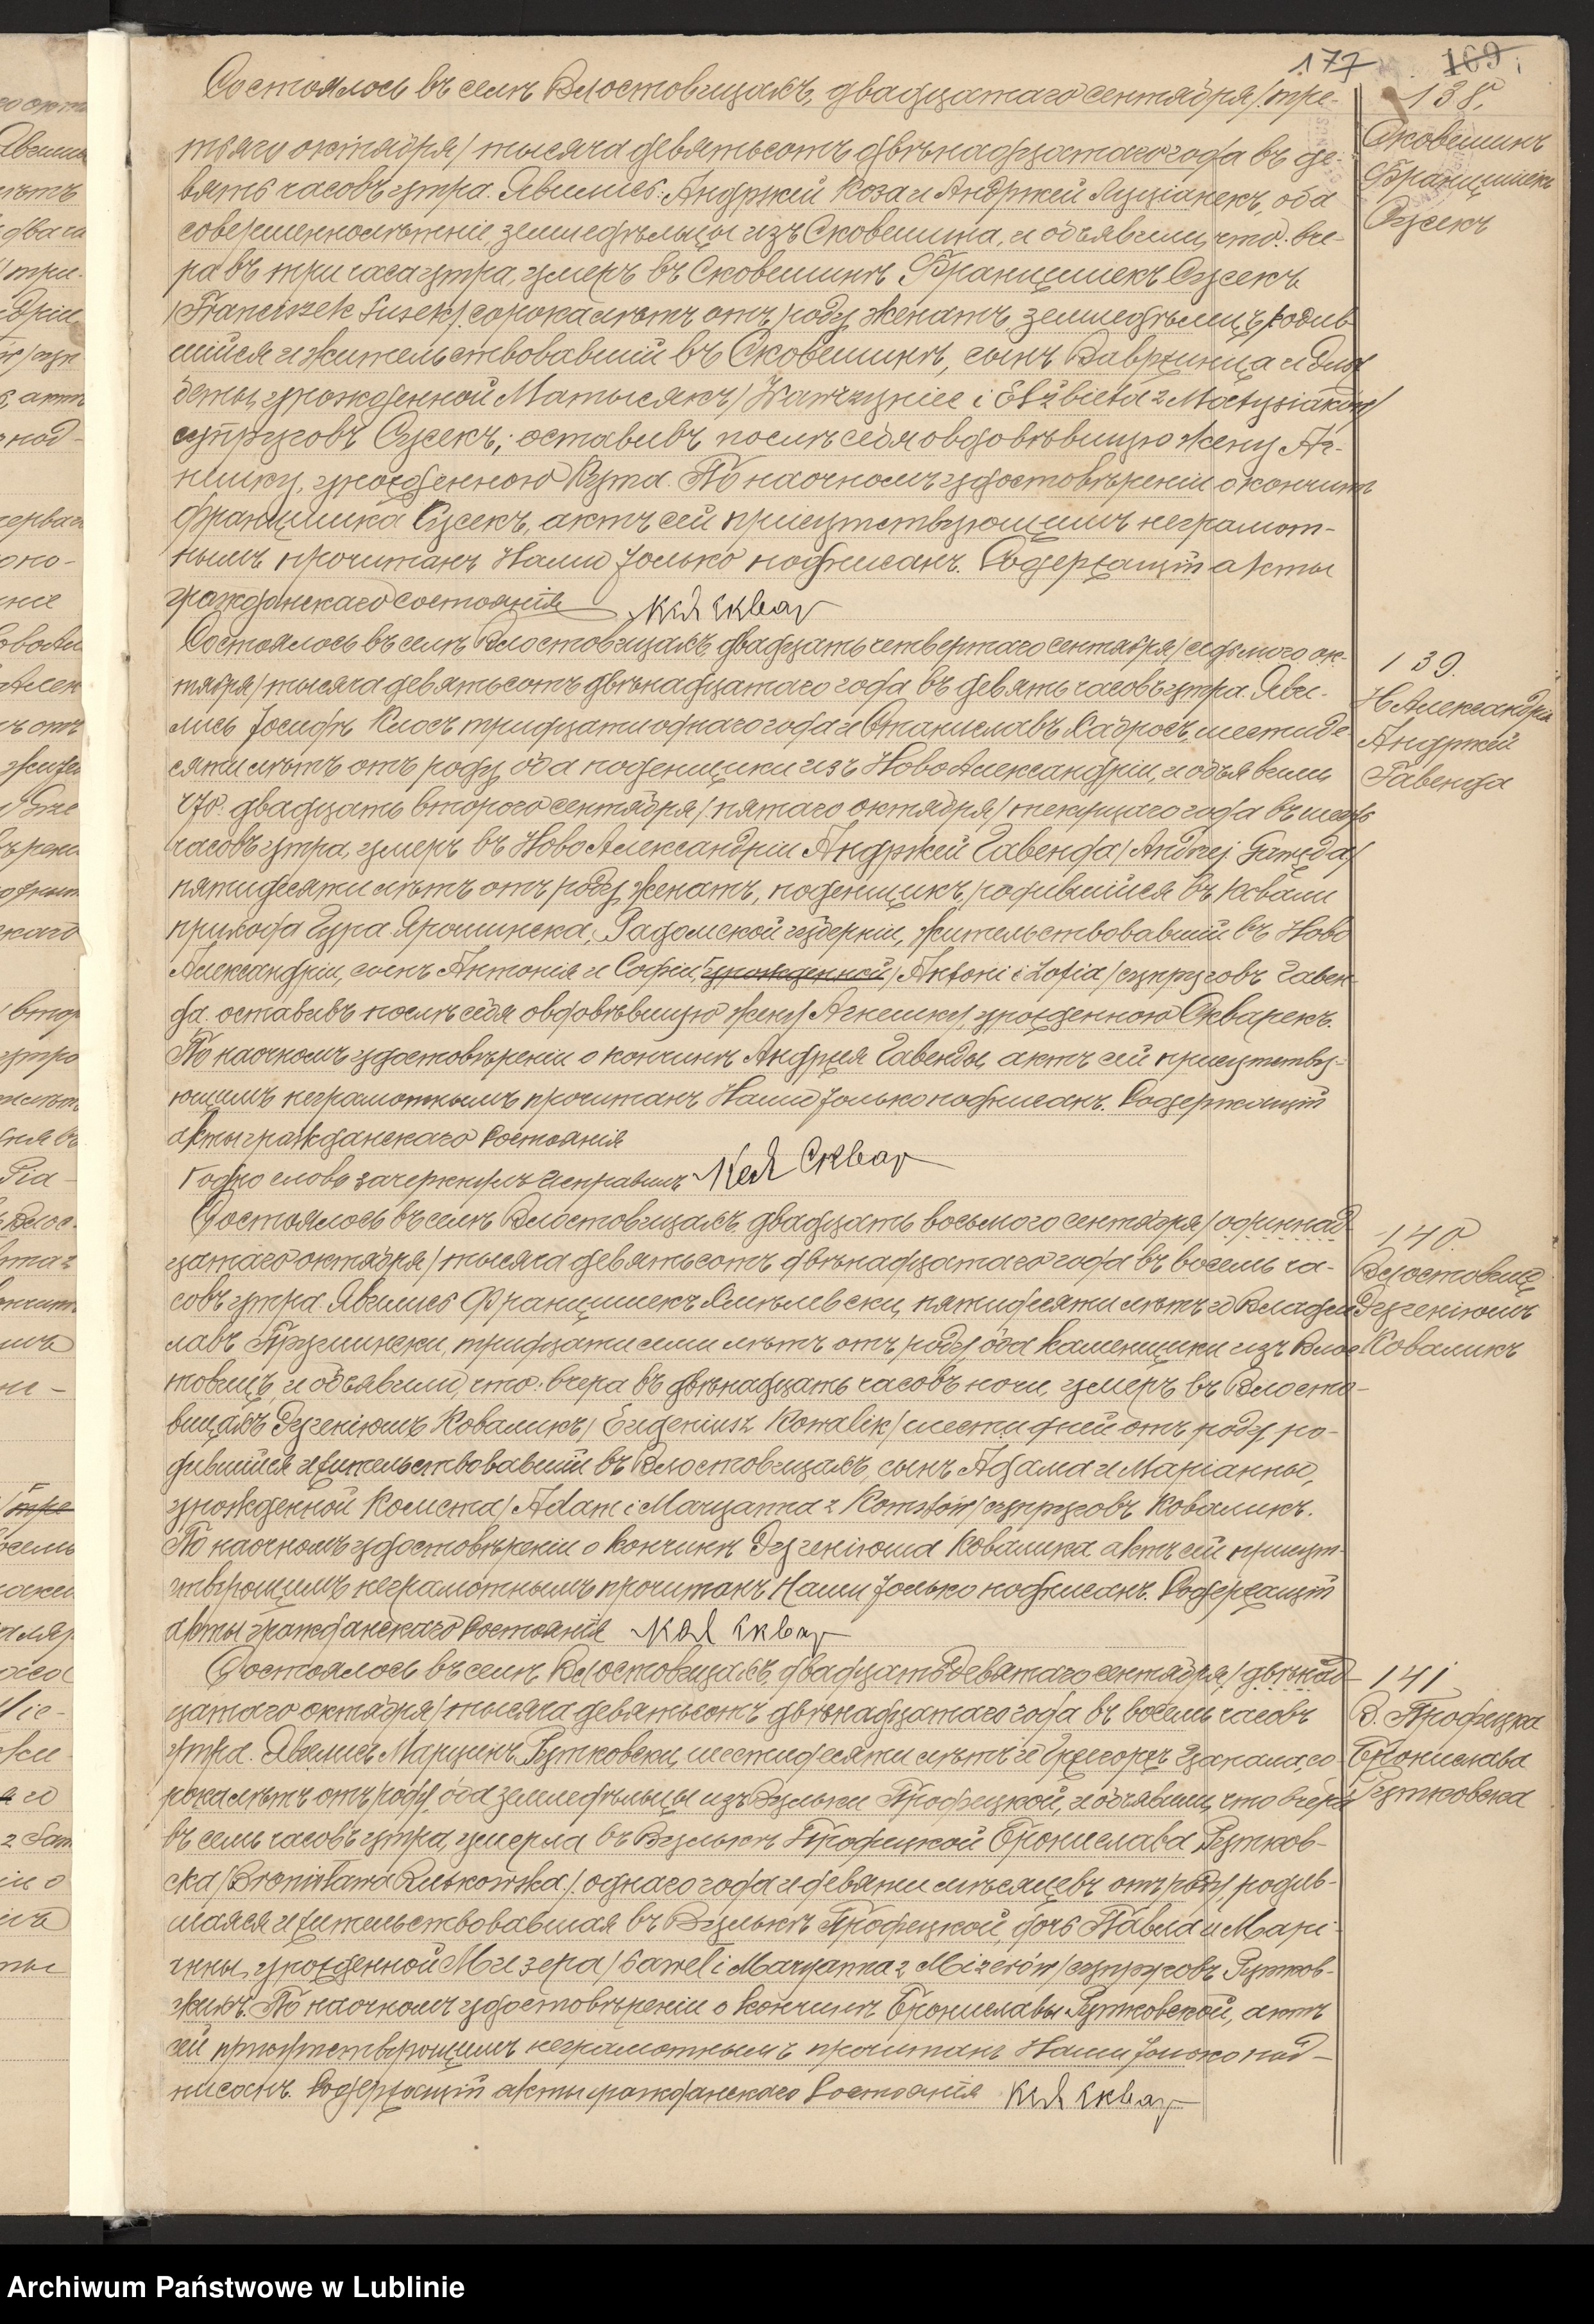 177 169
Состоялось въ селѣ Влостовицахъ, двадцатаго сентября /тре-
тяго октября/ тысяча девятьсотъ двѣнадцатаго года въ де-
вять часовъ утра. Явились: Андржей Коза и Андржей Луціанекъ, оба
совершеннолѣтніе, земледѣльцы изъ Сковешина, и объявили, что: вче-
ра въ три часа утра, умеръ въ Сковешинѣ Францишекъ Сусекъ
/Franciszek Susek/ сорока лѣтъ отъ роду женатъ, земледѣлецъ, родив-
шійся и жительствовавшій въ Сковешинѣ, сынъ Вавржинца и Эльж
беты, урожденной Матысякъ /Wawrzyniec i Elżbieta z Matysiaków/
супруговъ Сусекъ; оставивъ послѣ себя овдовѣвшую жену Аг-
нишку, урожденную Кута. По наочномъ удостовѣреніи о кончинѣ
Францишка Сусекъ, актъ сей присутствующимъ неграмот-
нымъ прочитанъ Нами только подписанъ. Содержащій акты
гражданскаго состоянія Кс Я Сквар
138.
Сковешинъ
Францишекъ
Сусекъ
Состоялось въ селѣ Влостовицахъ двадцать четвертаго сентября /седьмого ок-
тября/ тысяча девятьсотъ двѣнадцатаго года въ девять часовъ утра. Яви-
лись Іосифъ Клосъ тридцати одного года и Станиславъ шестиде
сяти лѣтъ отъ роду, оба поденщики изъ Ново Александріи, и объявили
что: двадцать второго сентября /пятаго октября/ текущаго года въ шесть
часовъ утра, умеръ въ Ново Александріи Андржей Гавенда /Andrzej Gawęda/
пятидесяти лѣтъ отъ роду, женатъ, поденщикъ, родившійся въ Ковали
прихода Гура Ярошинска, Радомской губерніи, жительствовавшій въ Ново
Александріи, сынъ Антонія и Софіи, урожденной /Antoni i Zofia/ супруговъ Гавен-
да. оставивъ послѣ себя овдовѣвшую жену Агнешку, урожденную Скварекъ.
По наочномъ удостовѣреніи о кончинѣ Андрея Гавенды, актъ сей присутству-
ющимъ неграмотнымъ прочитанъ Нами только подписанъ. Содержащій
акты гражданскаго состоянія
одно слово зачеркнулъ исправилъ Кс Я Сквар
139.
Н Александрія
Андржей
Гавенда
Состоялось въ селѣ Влостовицахъ, двадцать восьмого сентября /одиннад-
цатаго октября/ тысяча девятьсотъ двѣнадцатаго года въ восемь ча-
совъ утра. Явились Францишекъ Хмѣлевски, пятидесяти лѣтъ и Владис
лавъ тридцати семи лѣтъ отъ роду, оба каменщики изъ Влос
товицъ, и объявили, что: вчера въ двѣнадцать часовъ ночи, умеръ въ Влосто-
вицахъ Эугеніюшъ Коваликъ /Eugeniusz Kowalik/ шести дней отъ роду, ро-
дившійся и жительствовавшій въ Влостовицахъ, сынъ Адама и Маріанны,
урожденной Комста /Adam i Maryanna z Komstów/ супруговъ Коваликъ.
По наочномъ удостовѣреніи о кончинѣ Эугеніюша Ковалика актъ сей присут-
ствующимъ неграмотнымъ прочитанъ Нами только подписанъ. Содержащій
акты гражданскаго состоянія Кс Я Сквар
140.
Влостовиц
Эугеніюшъ
Коваликъ
Состоялось въ селѣ Влостовицахъ, двадцать девятаго сентября /двѣнад-
цатаго октября/ тысяча девятьсотъ двѣнадцатаго года въ восемь часовъ
утра. Явились Марцинъ Рутковски, шестидесяти лѣтъ и Гжегоржъ Цапала, со
рока лѣтъ отъ роду, оба земледѣльцы изъ Вульки Профецкой, и объявили, что вчера
въ семь часовъ утра, умерла въ Вулькѣ Профецкой Бронислава Рутков-
ска /Bronisława Rutkowska/ одного года и девяти мѣсяцевъ отъ роду, родив-
шаяся и жительствовавшая въ Вулькѣ Профецкой, дочь Павла и Марі-
анны, урожденной Мизера /Paweł i Maryanna z Mizerów/ супруговъ Рутков-
скихъ. По наочномъ удостовѣреніи о кончинѣ Брониславы Рутковской, актъ
сей присутствующимъ неграмотнымъ прочитанъ Нами только под-
писанъ. Содержащій акты гражданскаго состоянія Кс Я Сквар
141
В. Профецка
Бронислава
Рутковска
Archiwum Państwowe w Lublinie